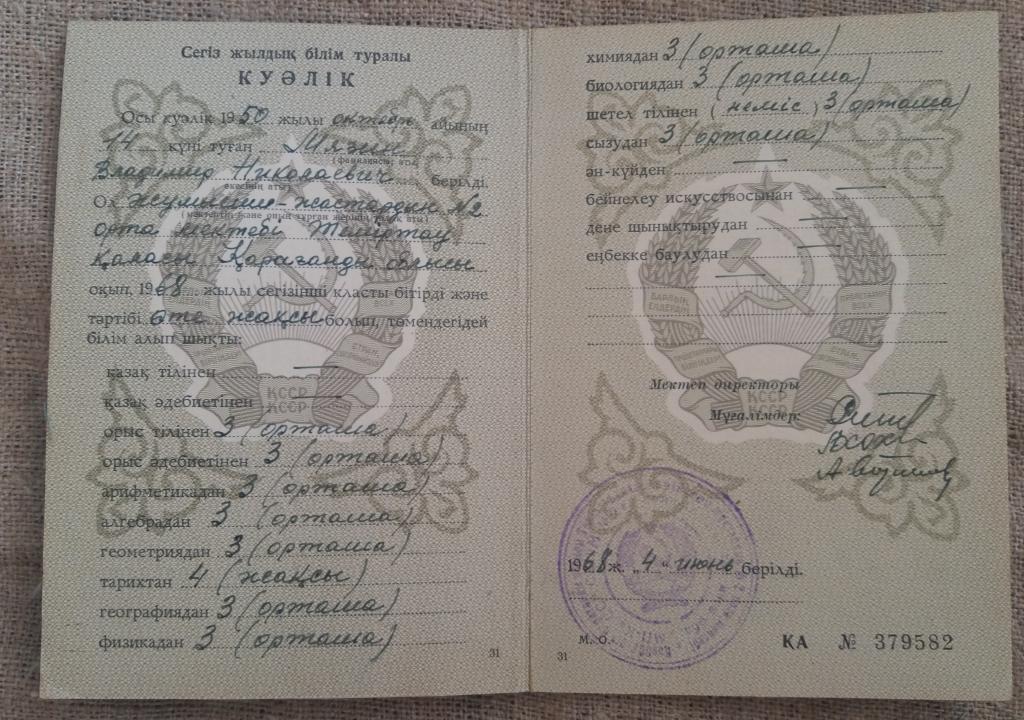 Сегіз жылдық білім туралы
КУӘЛІК
Осы куәлік 1950 жылы октябрь айының
14 күні туған
(фамилиясы, аты)
Владимир Николаевич берілді.
әкесінің аты
Ол Жұмысшы-жастардың №2
(мектептің және оның тұрған жерінің толық аты)
орта мектебі Теміртау
қаласы Қарағанды облысы
оқып, 1968 жылы сегізінші класты бітірді және
тәртібі өте жақсы болып, төмендегідей
білім алып шықты:
қазақ тілінен —
қазақ әдебиетінен —
орыс тілінен 3 (орташа)
орыс әдебиетінен 3 (орташа)
арифметикадан 3 (орташа)
алгебрадан 3 (орташа)
геометриядан 3 (орташа)
тарихтан 4 (жақсы)
географиядан 3 (орташа)
физикадан 3 (орташа)
31
химиядан 3 (орташа)
биологиядан 3 (орташа)
шетел тілінен (неміс) 3 (орташа)
сызудан 3 (орташа)
ән-күйден —
бейнелеу искусствосынан —
дене шынықтырудан —
еңбекке баулудан —
ҚССР
КССР
Мектеп директоры
Мұғалімдер:
1968 ж. „4“ июнь берілді.
М. О.
31
ҚА № 379582